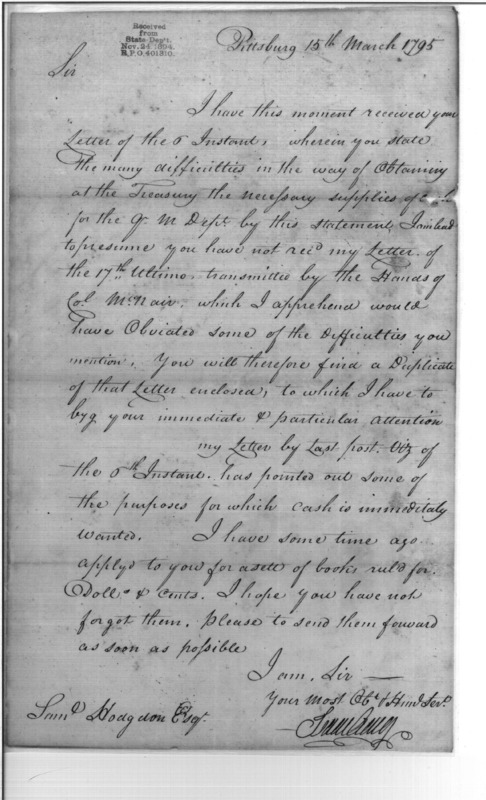 Received
from
State Dep't.
Nov. 24, 1894.
R.P.O. 401310.
Pittsburg 15th March 1795
Sir
I have this moment received your
Letter of the 6 Instant, wherein you state
the many difficulties in the way of Obtaining
at the Treasury the necessary supplies of
for the Qr M Dept. by this statement, I am lead
to presume you have not rec'd my Letter of
the 17th Ultimo, transmitted by the Hands of
Col McNair, which I apprehend would
have Obviated some of the Difficulties you
mention, You will therefore find a Duplicate
of that Letter enclosed, to which I have to
beg your immediate & particular attention
my Letter by Last post. Viz of
the 6th Instant. has pointed out some of
the purposes for which cash is immeditaly
wanted. I have some time ago
apply'd to you for a sett of books rul'd for
Dolls & Cents. I hope you have not
forgot them, please to send them forward
as soon as possible
I am, Sir
Your Most Obt & Hum Servt
Saml Hodgdon Esqr.